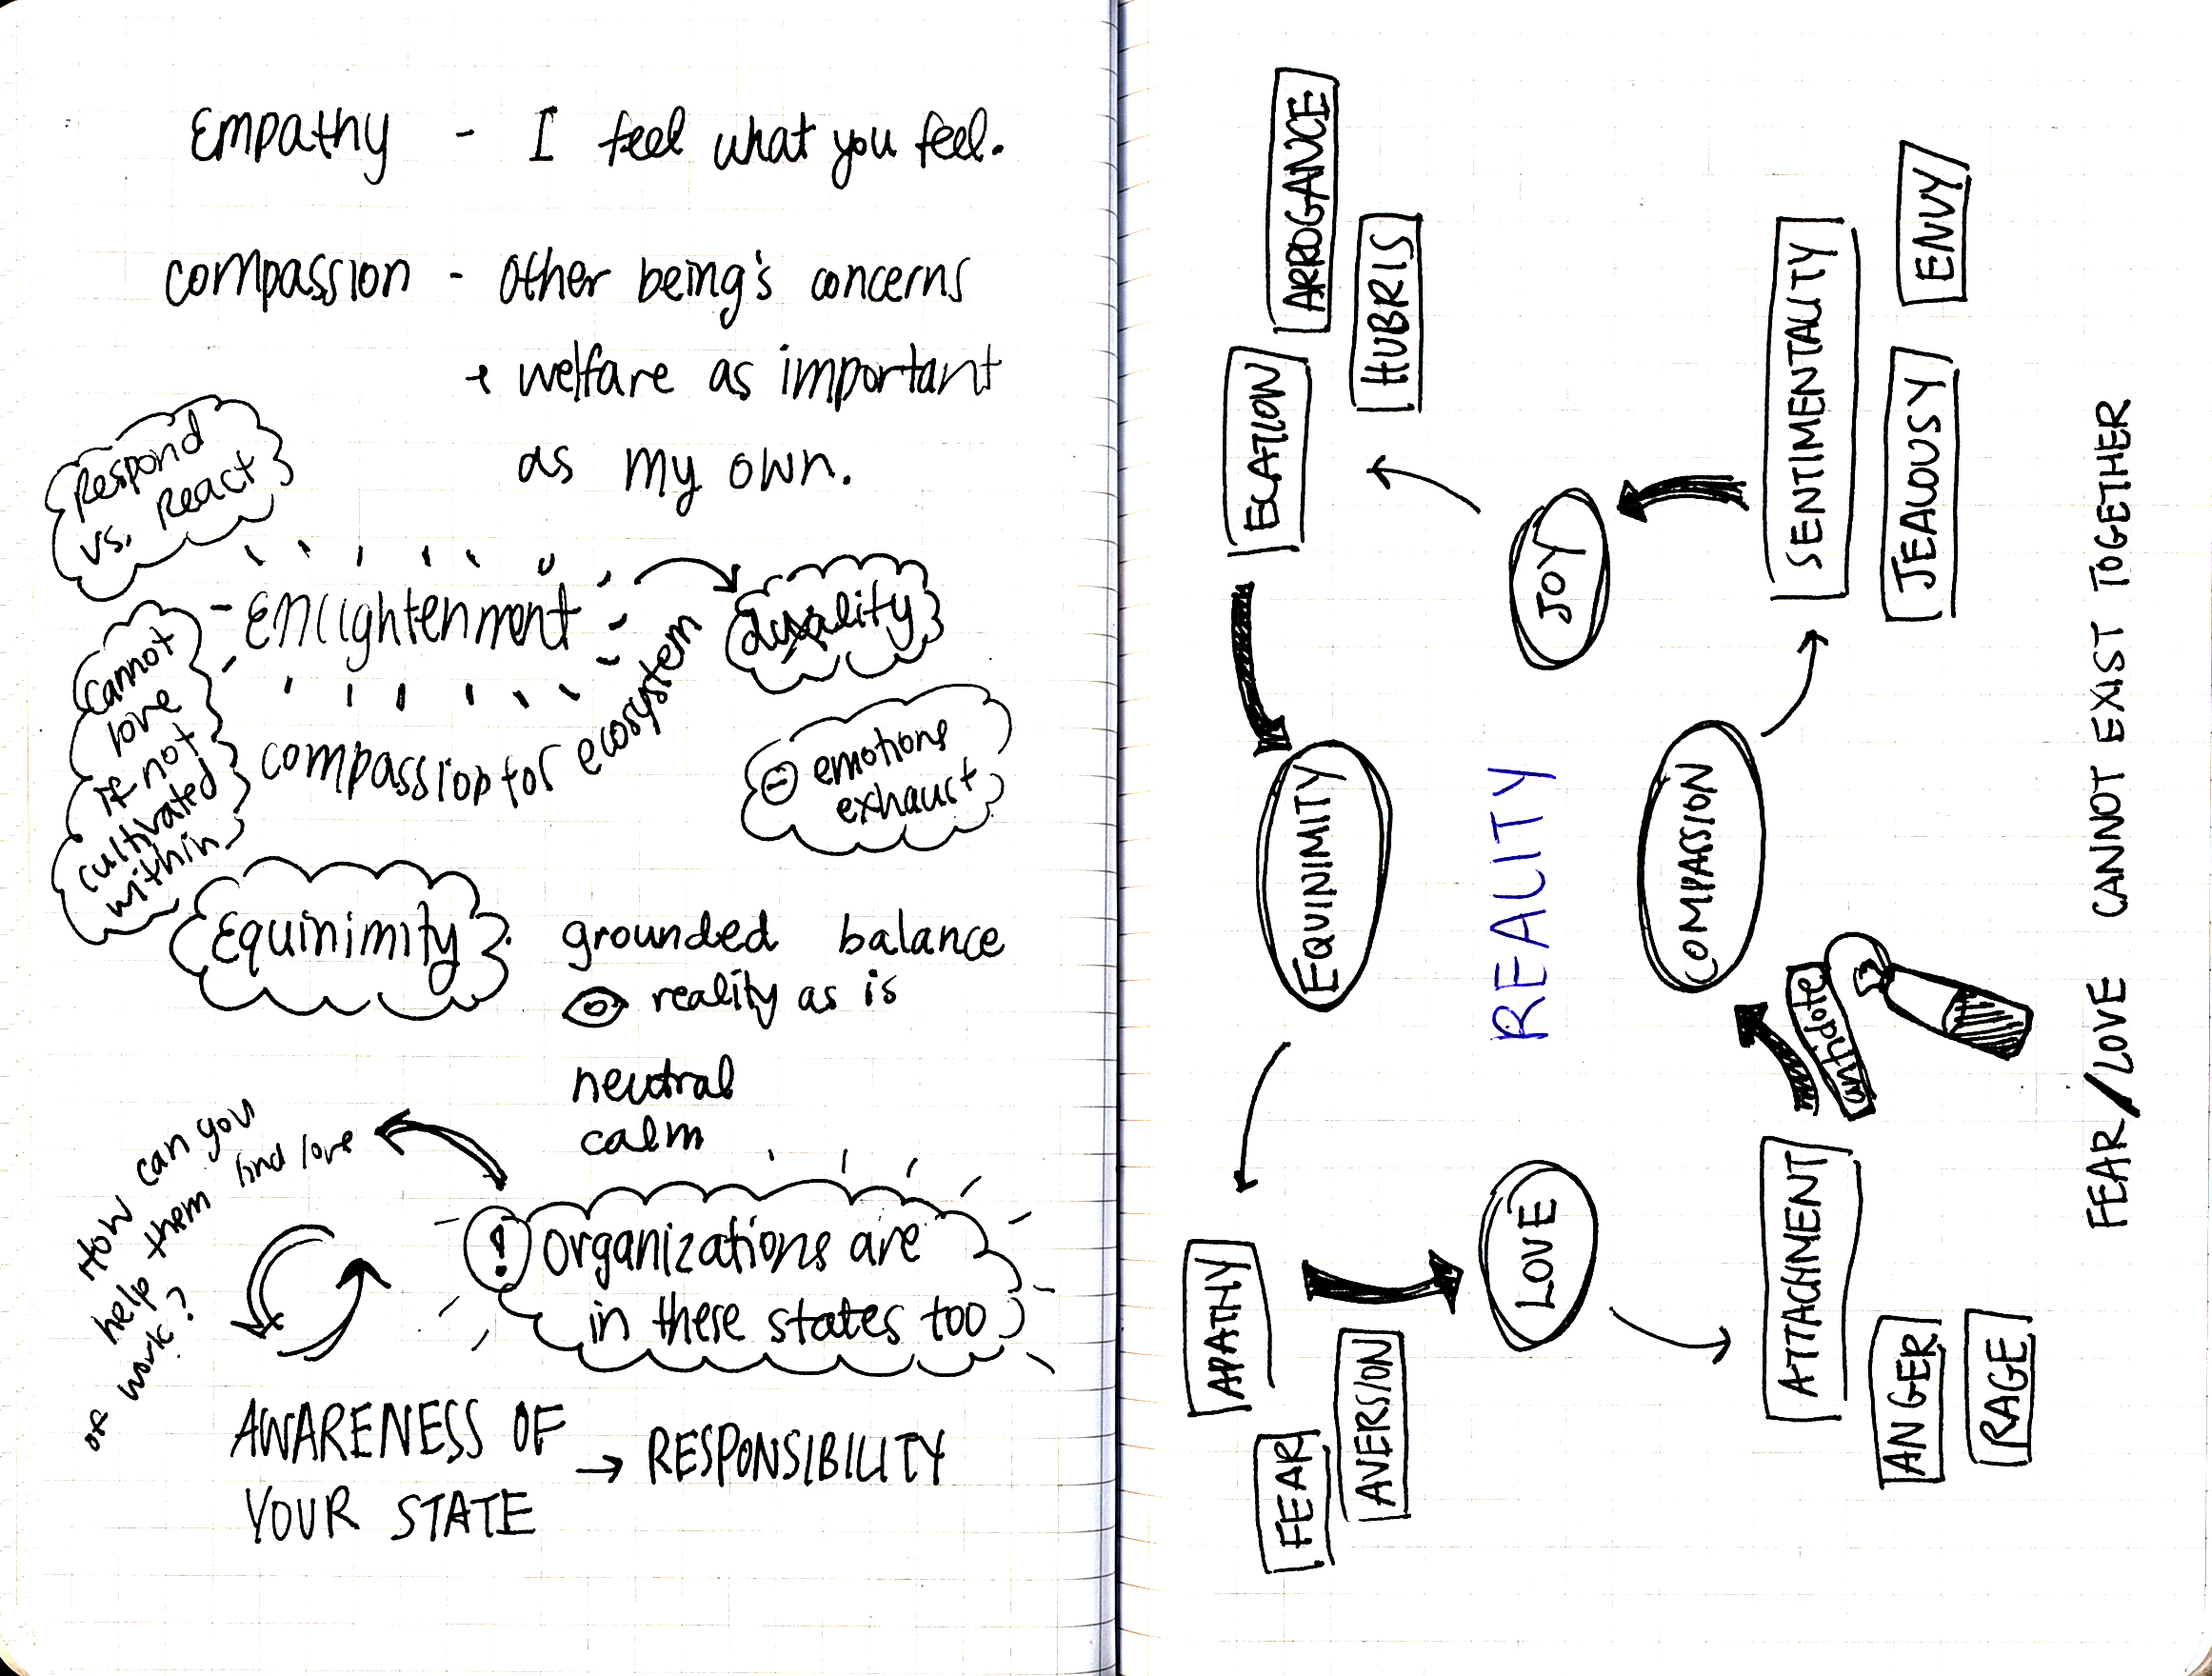 Empathy - I feel what you feel.
compassion - other being's concerns
+ welfare as important
as my own.
Respond
vs. React
Enlightenment
duality
compassion for ecosystem
cannot
love
if not
cultivated
within
⊖ emotions
exhaust
Equinimity
grounded balance
reality as is
neutral
calm
How can you
help them find love
work?
! organizations are
in these states too
AWARENESS OF
YOUR STATE
→ RESPONSIBILITY
ELATION
ARROGANCE
HUBRIS
EQUINIMITY
APATHY
FEAR
AVERSION
JOY
REALITY
LOVE
COMPASSION
SENTIMENTALITY
JEALOUSY
ENVY
antidote
ATTACHMENT
ANGER
RAGE
FEAR/LOVE CANNOT EXIST TOGETHER